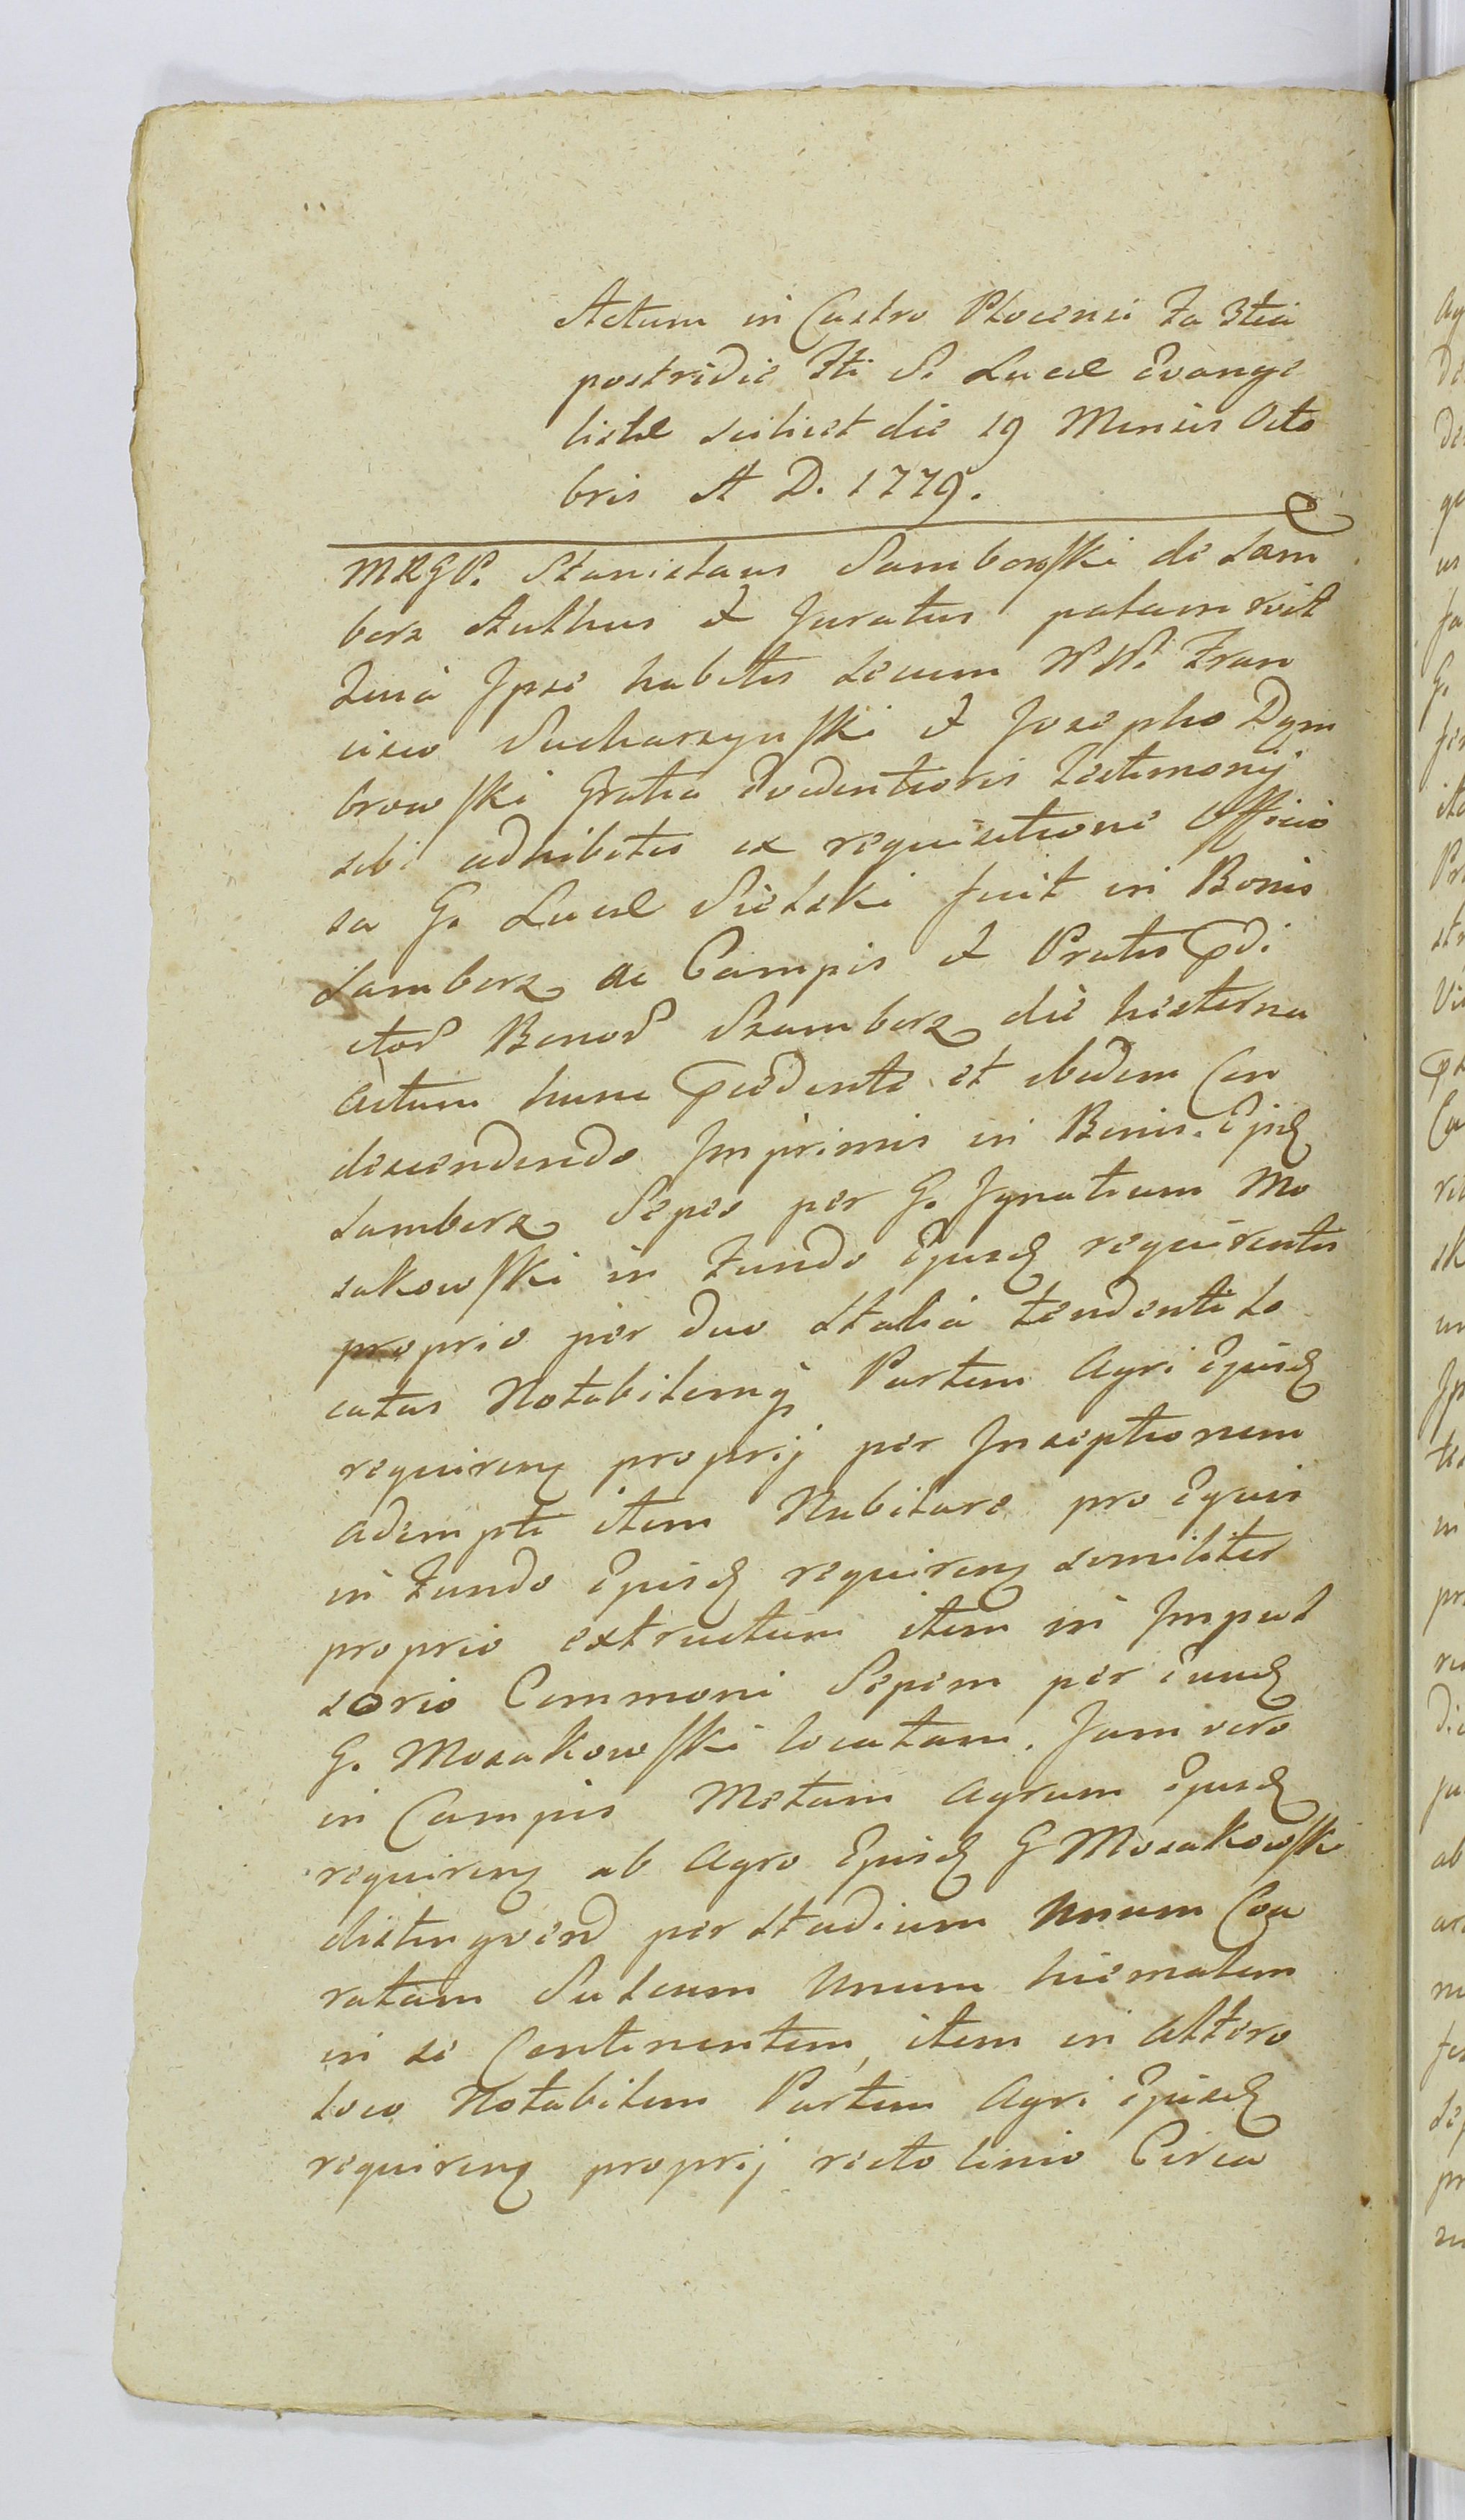 Actum in Castro Plocensi Fa 3tia
postridie Fti S. Lucae Evange
listae scilicet die 19 Mensis Octo
bris A D. 1779.
MRGP. Stanislaus Samborski de Sam
borz Authus et Juratus palam rvit
Quia Ipse habitis secum NN. Fran
cisco Sucharzynski et Josepho Dym
browski Gratia Evidentioris Testimonij
sibi adhibitis ex requisitione Officio
sa G. Lucae Sielski fuit in Bonis
Samborz ac Campis et Pratis
Bonor Szamborz die hesterna
Actum hunc et ibidem Con
descendendo Imprimis in Bonis Ejusd
Samborz Sepes per G. Ignatium Mo
sakowski in Fundo Ejusd requirentis
proprio per duo Stalia tendenti lo
catas Notabilemq Partem Agri Ejusd
requiren proprij per Inseptionem
adempti item Stabulare pro Equis
in Fundo Ejusd requiren similiter
proprio extructum item in Impul
sorio Commoni Sepem per Eund
G. Mosakowski locatam. Jam vero
in Campis Metam Agrum Ejusd
requiren ab Agro Ejusd G Mosakowski
distingvend per Stadium Unum Coa
ratam Sulcum Unum hiematem
in se Continentem, item in Altero
loco Notabilem Partem Agri Ejusd
requiren proprij recto linio Circa